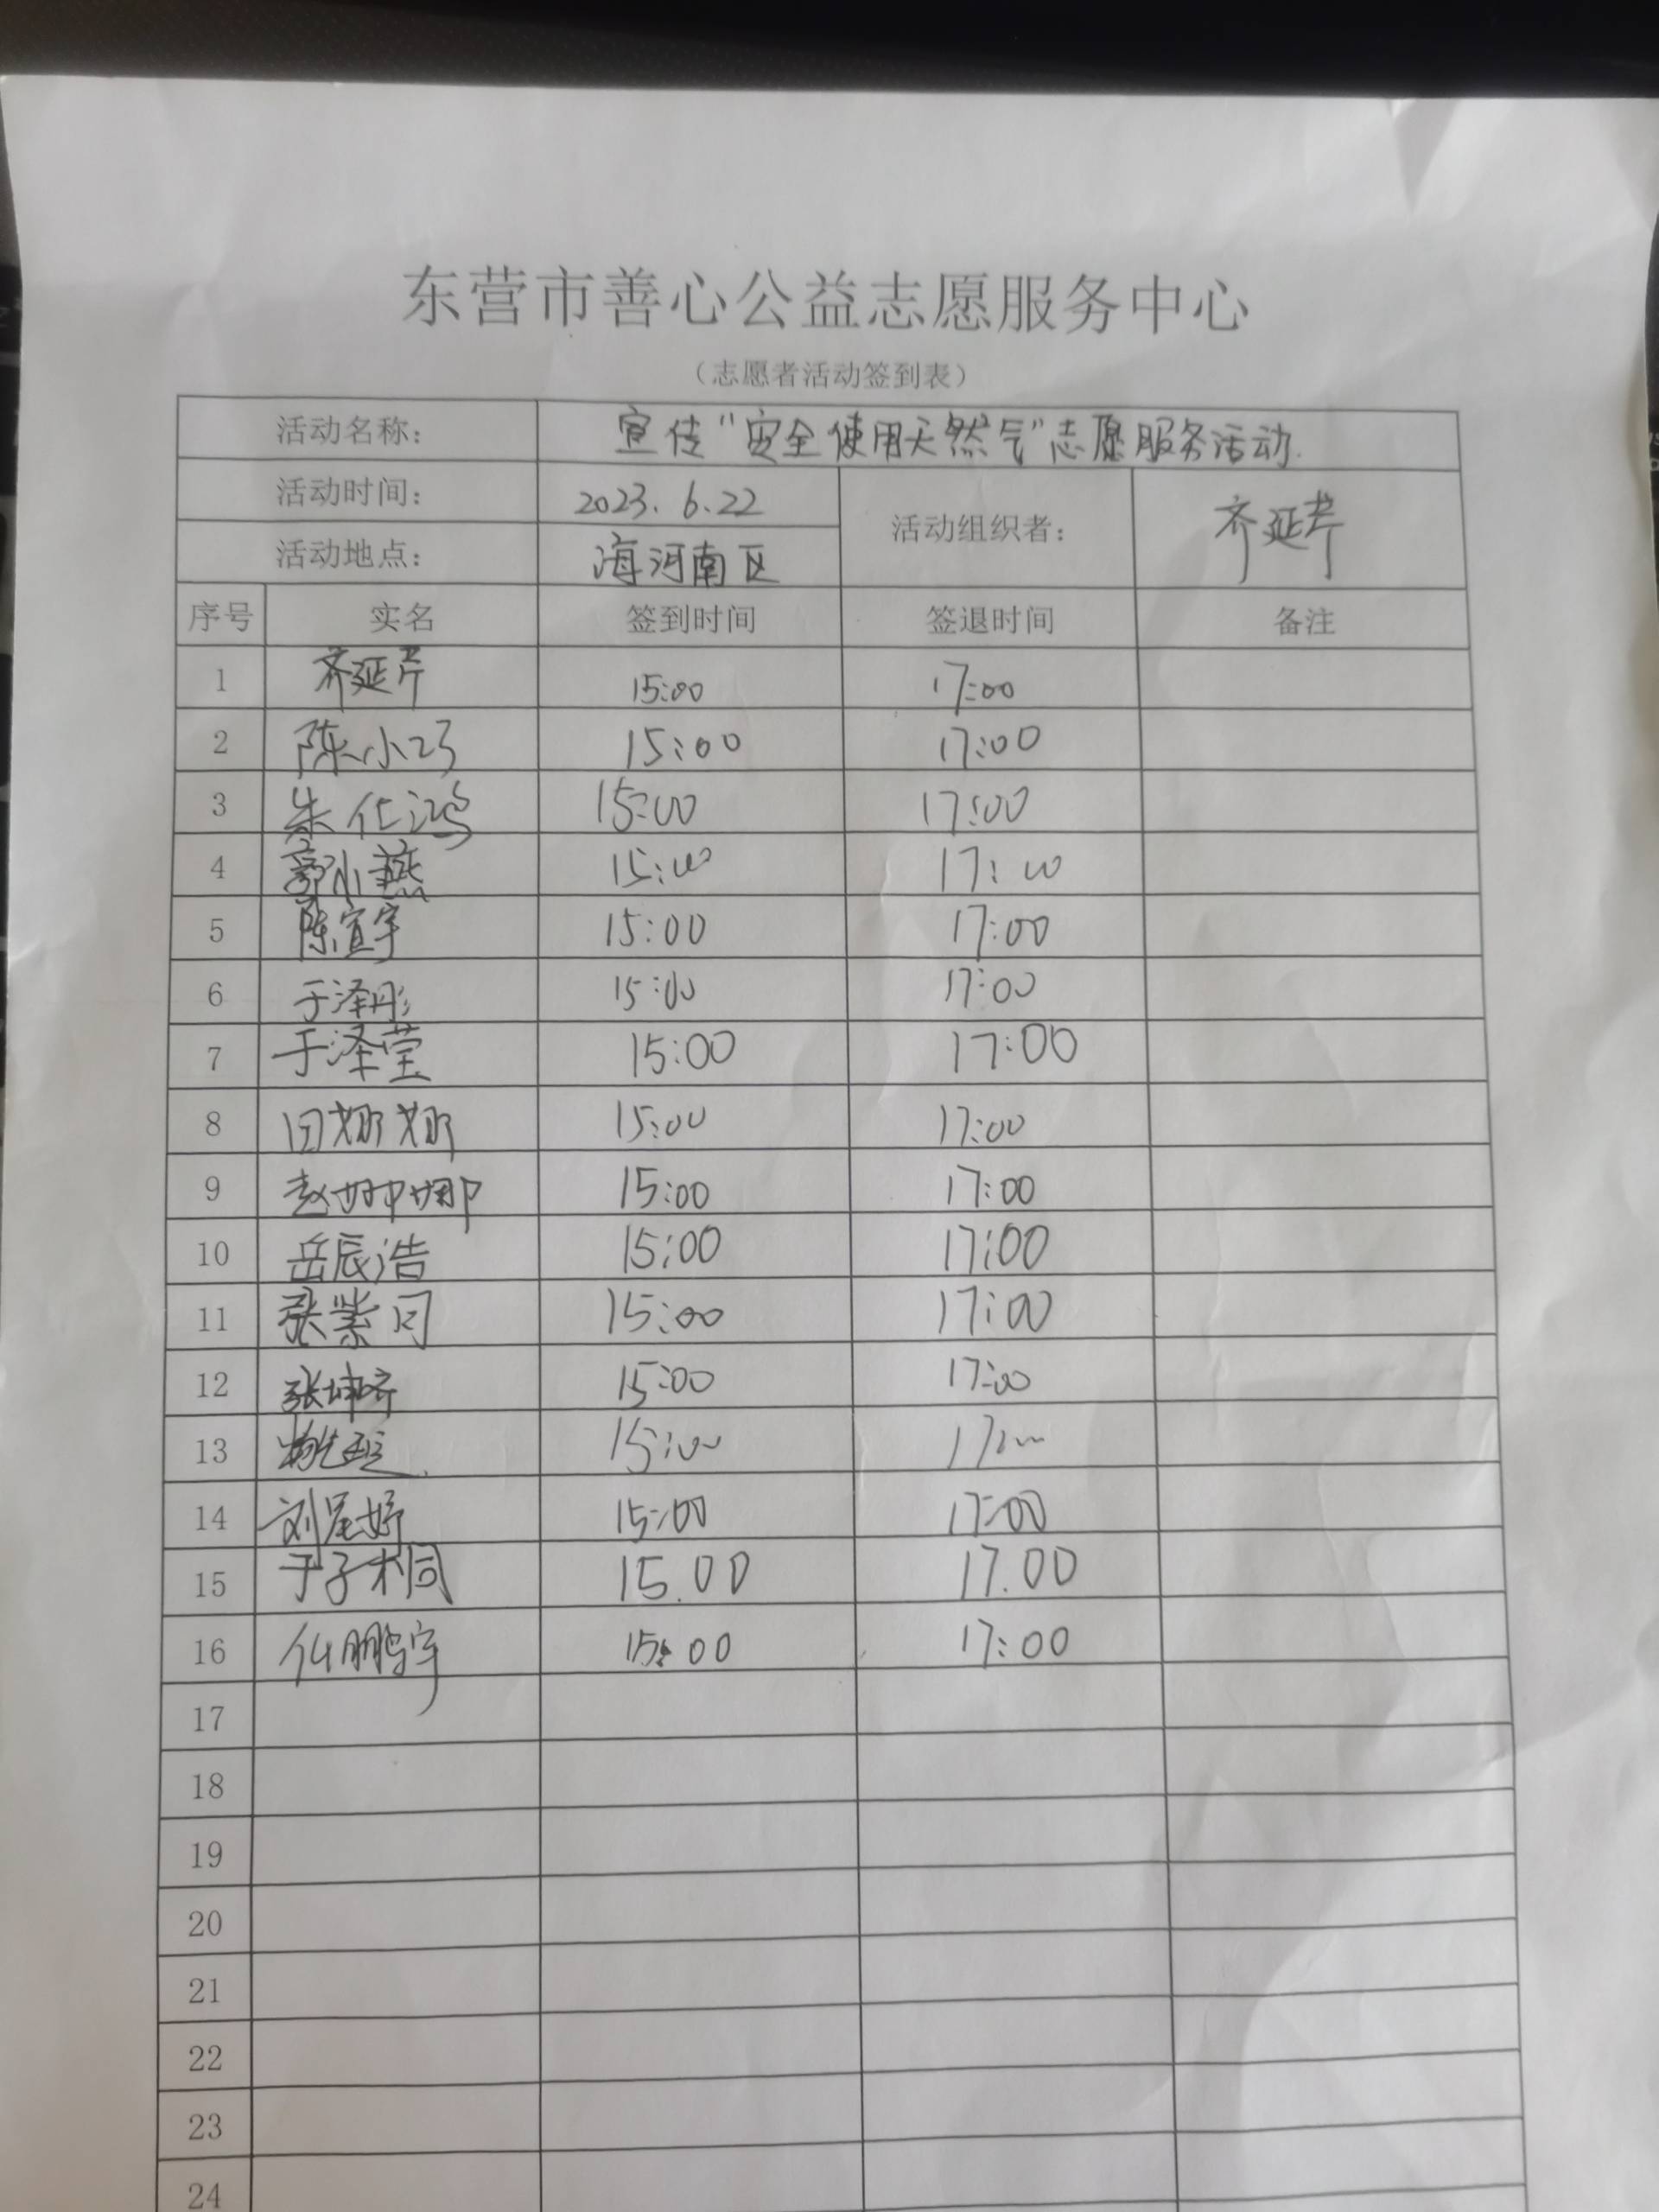 东营市善心公益志愿服务中心
（志愿者活动签到表）
活动名称： 宣传"安全使用天然气"志愿服务活动.
活动时间： 2023.6.22 活动组织者： 齐延芹
活动地点： 海河南区
序号 实名 签到时间 签退时间 备注
1 齐延芹 15:00 17:00
2 陈小巧 15:00 17:00
3 朱化鸿 15:00 17:00
4 郭小燕 15:00 17:00
5 陈宣宇 15:00 17:00
6 于泽彤 15:00 17:00
7 于泽莹 15:00 17:00
8 田娜娜 15:00 17:00
9 赵娜娜 15:00 17:00
10 岳辰浩 15:00 17:00
11 张紫同 15:00 17:00
12 张坤 15:00 17:00
13 15:00 17:00
14 刘星妤 15:00 17:00
15 于子桐 15.00 17.00
16 鹏宇 15:00 17:00
17
18
19
20
21
22
23
24